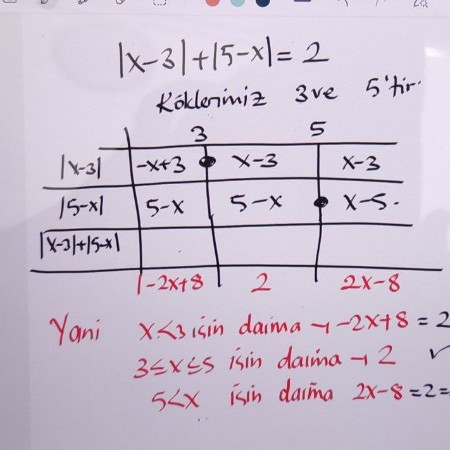 |x-3|+|5-x|= 2
Köklerimiz 3 ve 5'tir.
3 5
|x-3| -x+3 x-3 x-3
|5-x| 5-x 5-x x-5.
|x-3|+|5-x|
-2x+8 2 2x-8
Yani x<3 için daima → -2x+8 = 2
3≤x≤5 için daima → 2 ✓
5<x için daima 2x-8 =2=